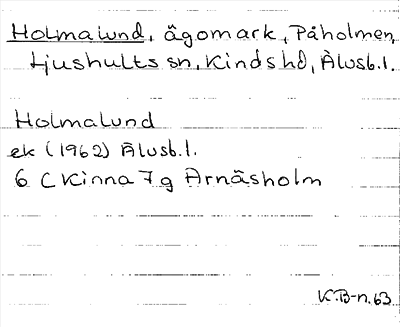 Holmalund, ägomark, Påholmen,
Ljushults sn, Kinds hd, Älvsb.l.
Holmalund
ek (1962) Älvsb.l.
6 C Kinna 7 g Arnäsholm
K.B-n. 63